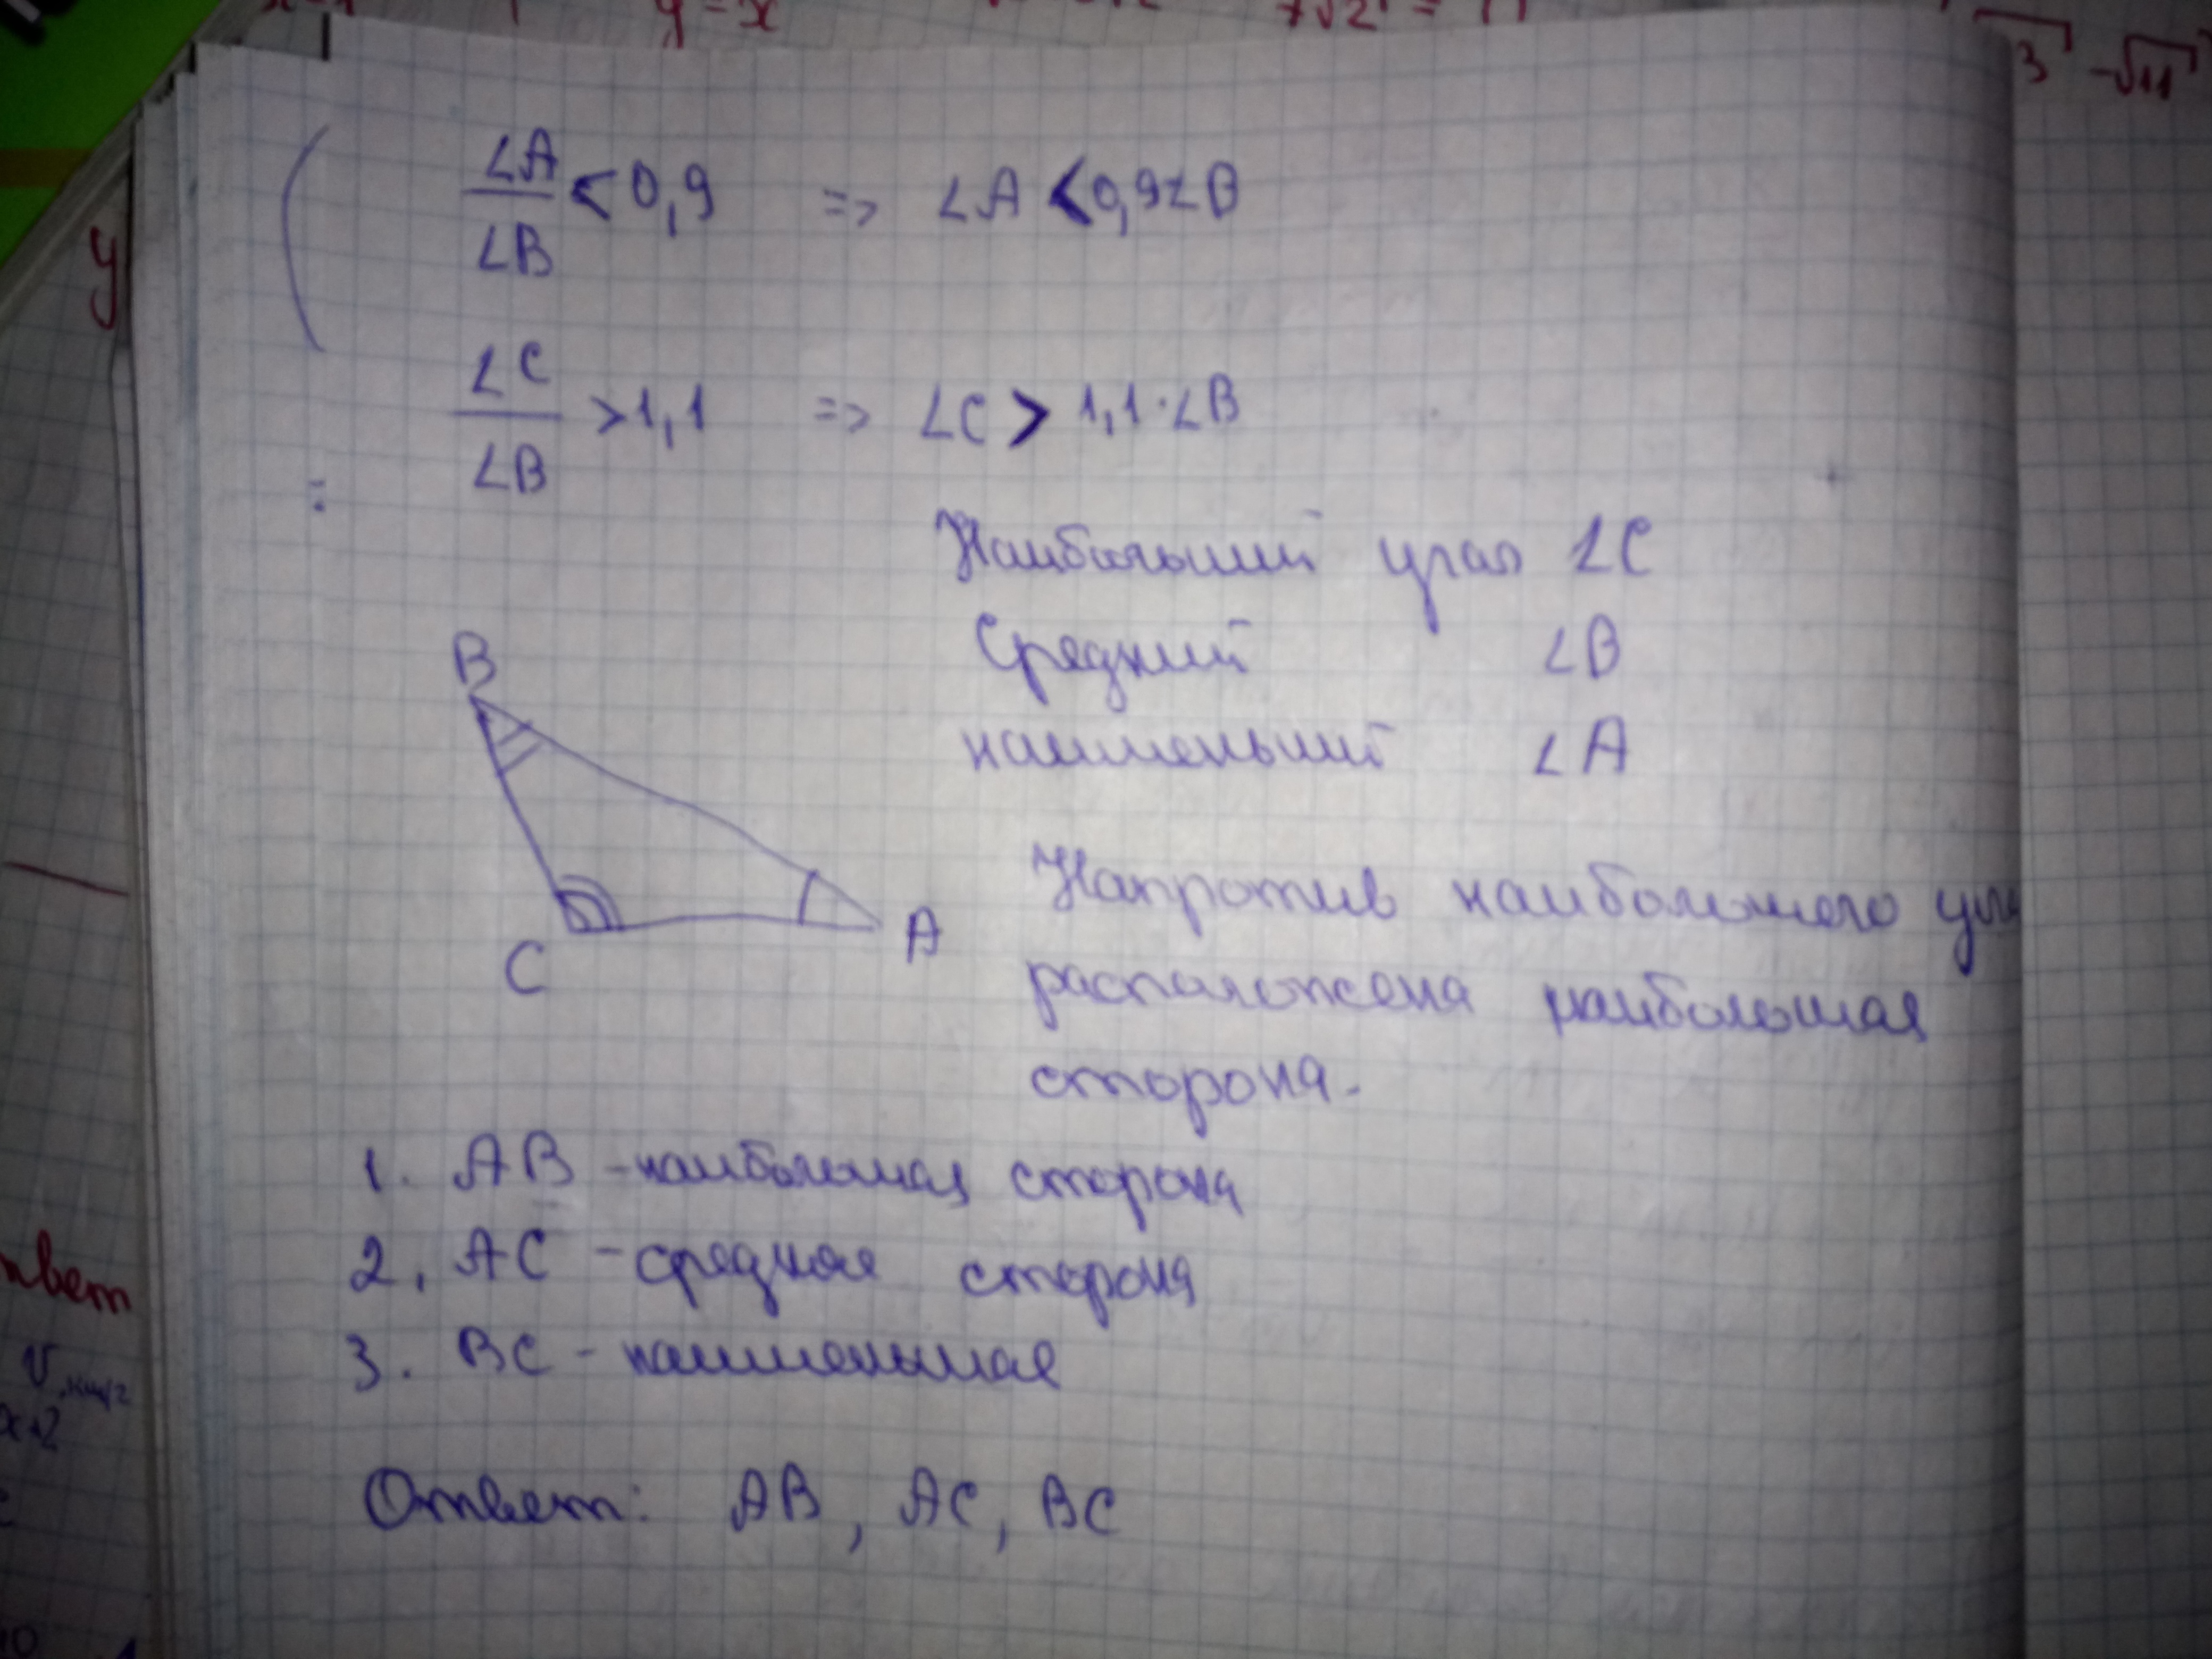 y = x
3 - √11
∠A/∠B < 0,9 => ∠A < 0,9∠B
y
∠C/∠B > 1,1 => ∠C > 1,1·∠B
Наибольший угол ∠C
Средний ∠B
наименьший ∠A
B
C
A
Напротив наибольшего
расположена наибольшая
сторона.
1. AB - наибольшая сторона
2. AC - средняя сторона
3. BC - наименьшая
Ответ: AB, AC, BC